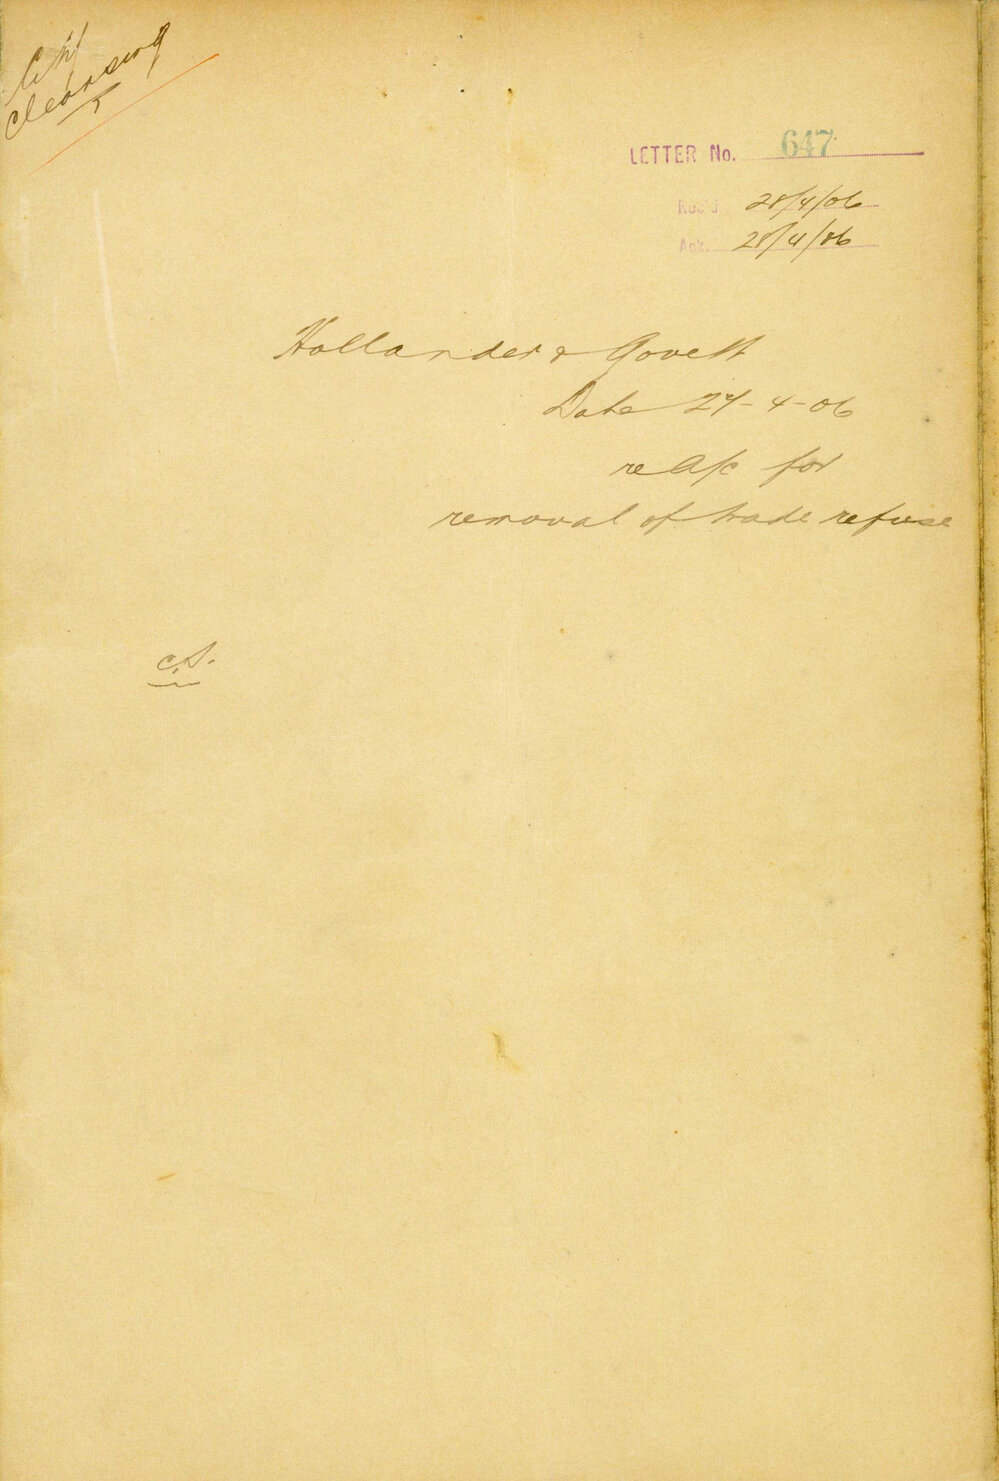 City
Cleansing
LETTER No. 647
Rec'd 28/4/06
Ack. 28/4/06
Hollander & Govett
Date 27-4-06
re A/c for
removal of trade refuse
C.S.